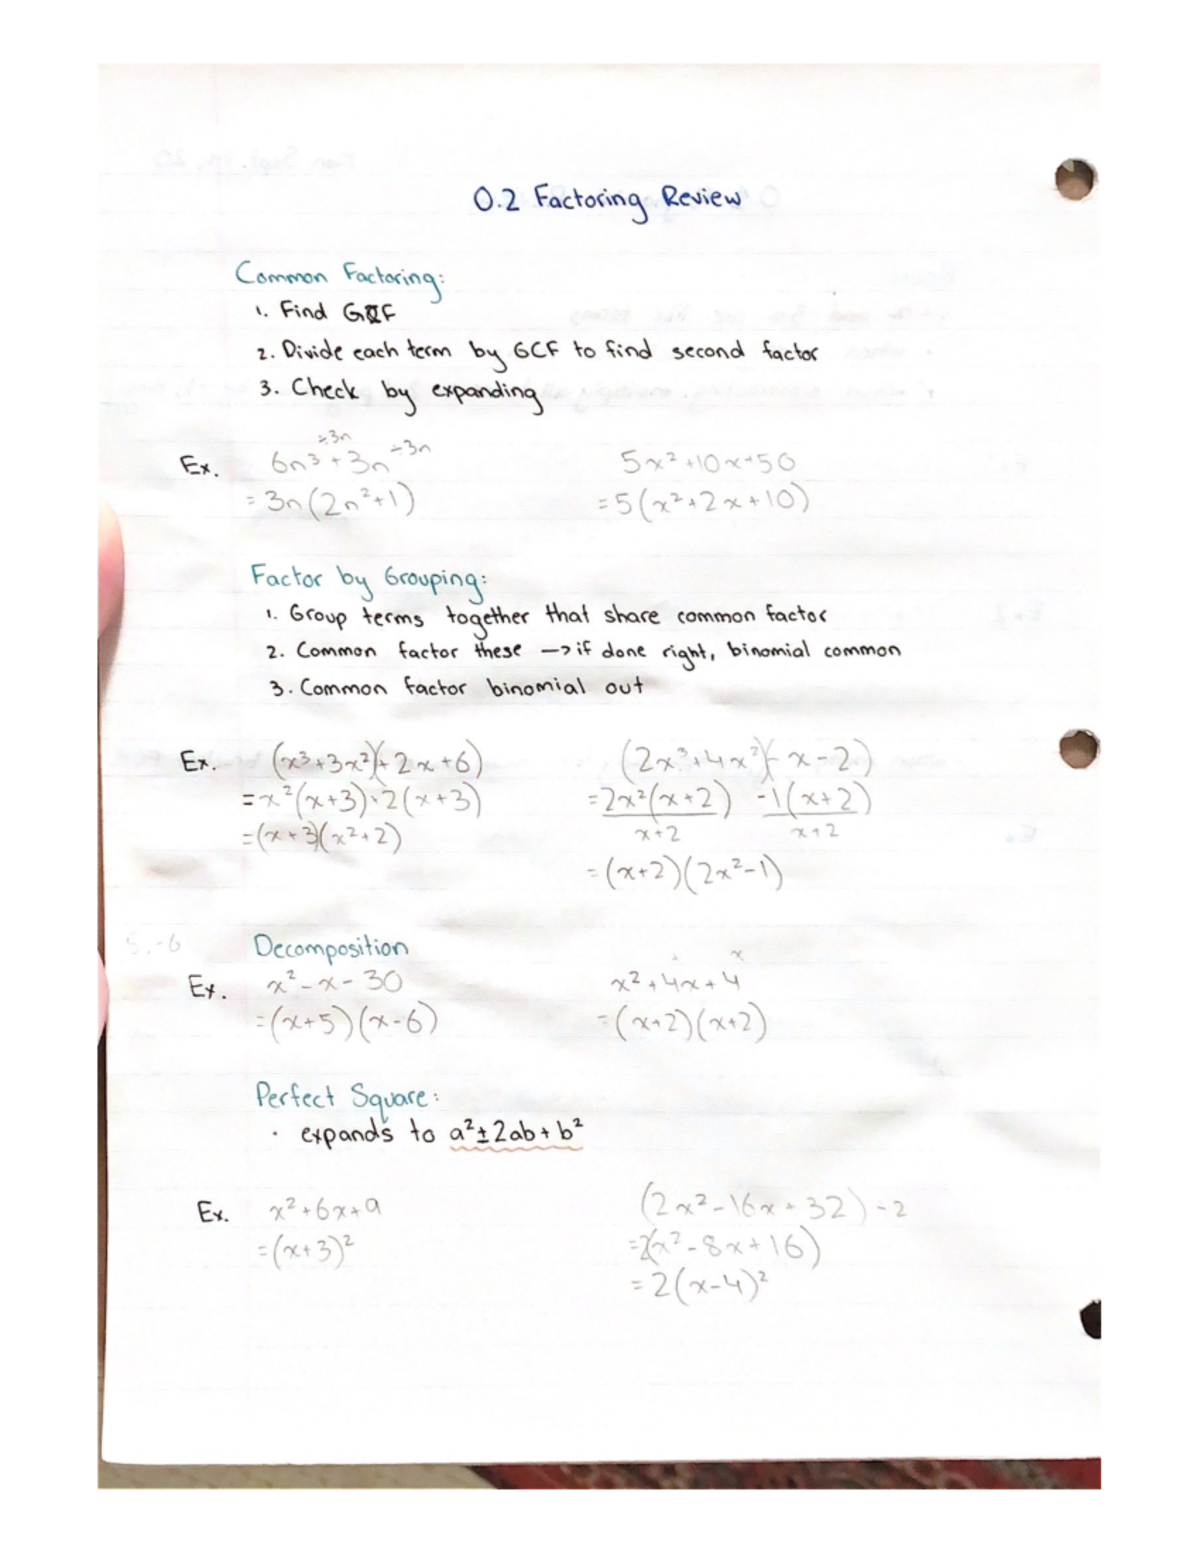 0.2 Factoring Review
Common Factoring:
1. Find GCF
2. Divide each term by GCF to find second factor
3. Check by expanding
÷3n ÷3n
Ex. 6n³+3n 5x²+10x+50
=3n(2n²+1) =5(x²+2x+10)
Factor by Grouping:
1. Group terms together that share common factor
2. Common factor these -> if done right, binomial common
3. Common factor binomial out
Ex. (x³+3x²)(+2x+6) (2x³+4x²)(-x-2)
=x²(x+3)+2(x+3) =2x²(x+2) -1(x+2)
=(x+3)(x²+2) x+2 x+2
=(x+2)(2x²-1)
5,-6 Decomposition
+ x
Ex. x²-x-30 x²+4x+4
=(x+5)(x-6) =(x+2)(x+2)
Perfect Square:
· expands to a²±2ab+b²
Ex. x²+6x+9 (2x²-16x+32)÷2
=(x+3)² =2(x²-8x+16)
=2(x-4)²